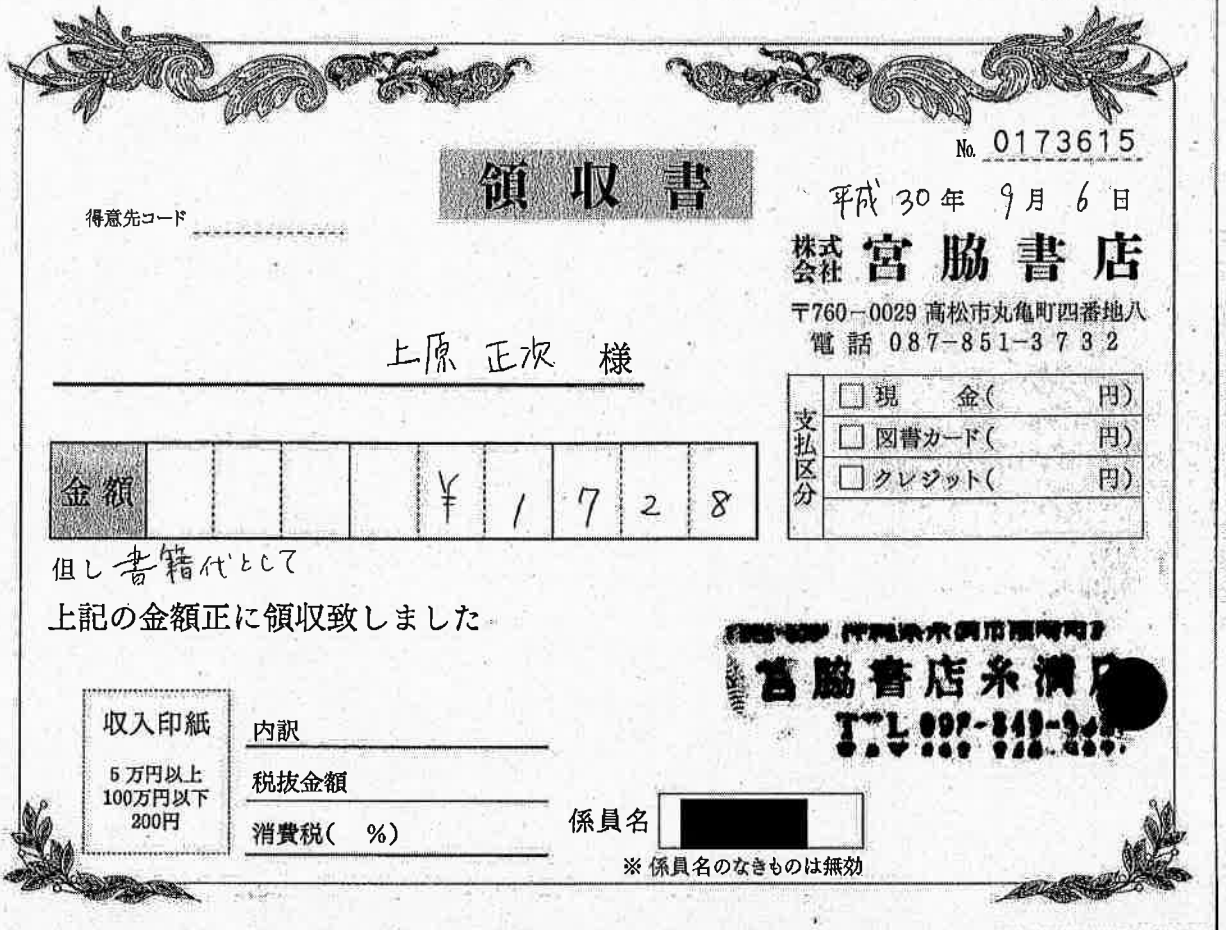 No. 0173615
領収書
平成30年 9月 6日
得意先コード
株式会社 宮脇書店
〒760-0029 高松市丸亀町四番地八
電話 087-851-3732
上原 正次 様
支払区分
□ 現 金( 円)
□ 図書カード( 円)
□ クレジット( 円)
金額 ¥1728
但し 書籍代として
上記の金額正に領収致しました
宮脇書店糸満
収入印紙
5万円以上
100万円以下
200円
内訳
税抜金額
消費税( %)
係員名
※ 係員名のなきものは無効